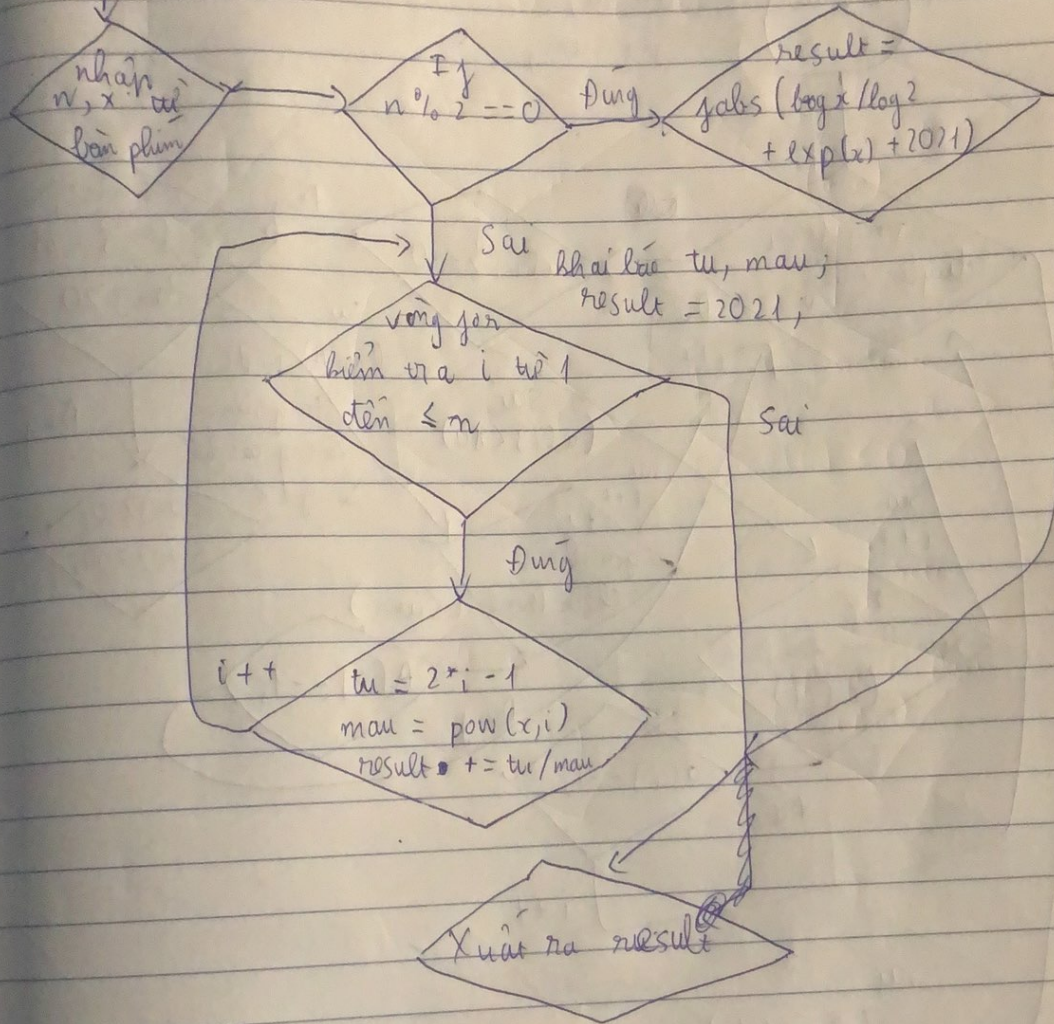 nhập
n, x từ
bàn phím
If
n % 2 == 0
Đúng
result =
fabs (log x / log 2
+ exp(x) + 2021)
Sai
khai báo tu, mau;
result = 2021;
vòng for
kiểm tra i từ 1
đến ≤ n
Sai
Đúng
i++
tu = 2*i - 1
mau = pow (x, i)
result += tu / mau
Xuất ra result